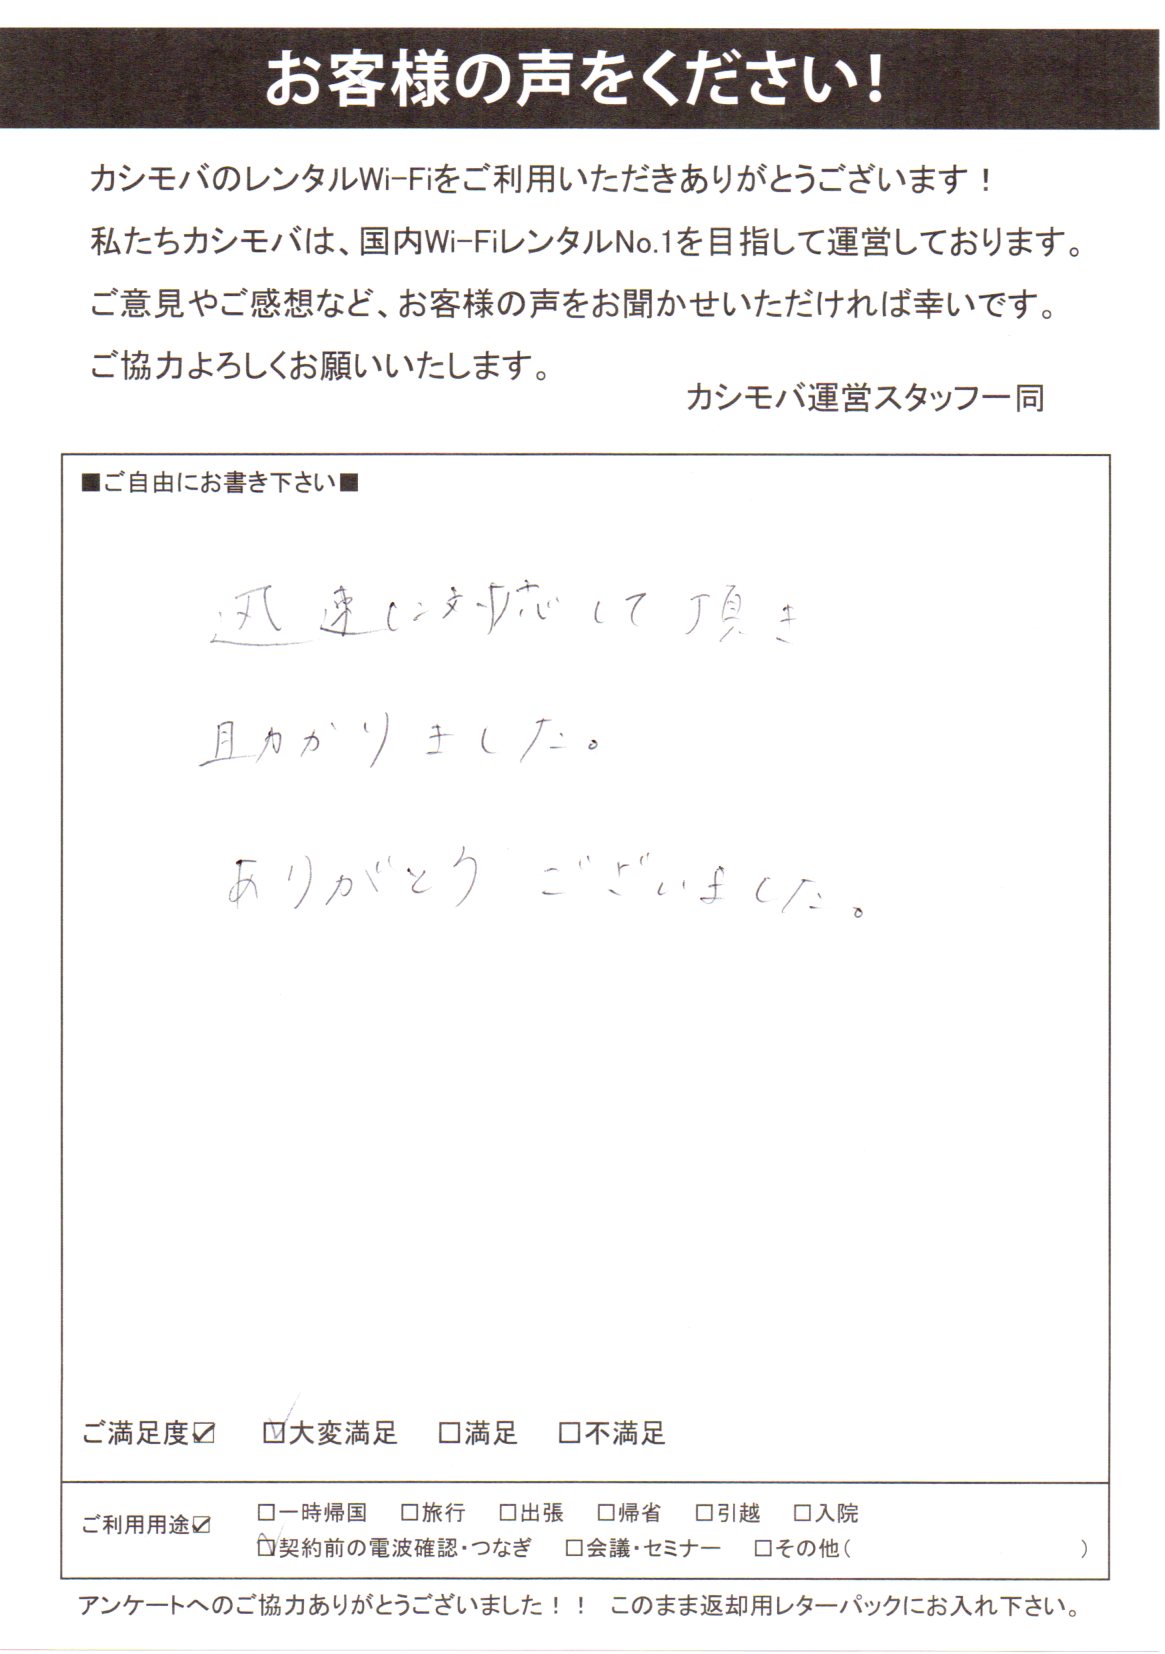 お客様の声をください!
カシモバのレンタルWi-Fiをご利用いただきありがとうございます！
私たちカシモバは、国内Wi-FiレンタルNo.1を目指して運営しております。
ご意見やご感想など、お客様の声をお聞かせいただければ幸いです。
ご協力よろしくお願いいたします。
カシモバ運営スタッフ一同
■ご自由にお書き下さい■
迅速に対応して頂き
助かりました。
ありがとうございました。
ご満足度☑ ☑大変満足 □満足 □不満足
ご利用用途☑ □一時帰国 □旅行 □出張 □帰省 □引越 □入院
☑契約前の電波確認・つなぎ □会議・セミナー □その他( )
アンケートへのご協力ありがとうございました！！ このまま返却用レターパックにお入れ下さい。